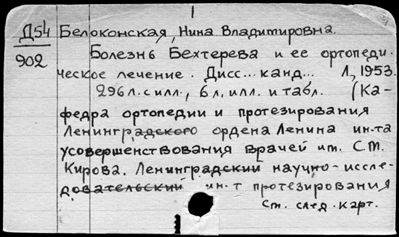 Д54 Белоконская, Нина Владимировна.
902 Болезнь Бехтерева и ее ортопеди-
ческое лечение. Дисс... канд... Л, 1953.
296 л. с илл., 6 л. илл. и табл. (Ка-
федра ортопедии и протезирования
Ленинградского ордена Ленина ин-та
усовершенствования врачей им. С.М.
Кирова. Ленинградский научно-иссле-
довательский ин-т протезирования
См. след. карт.